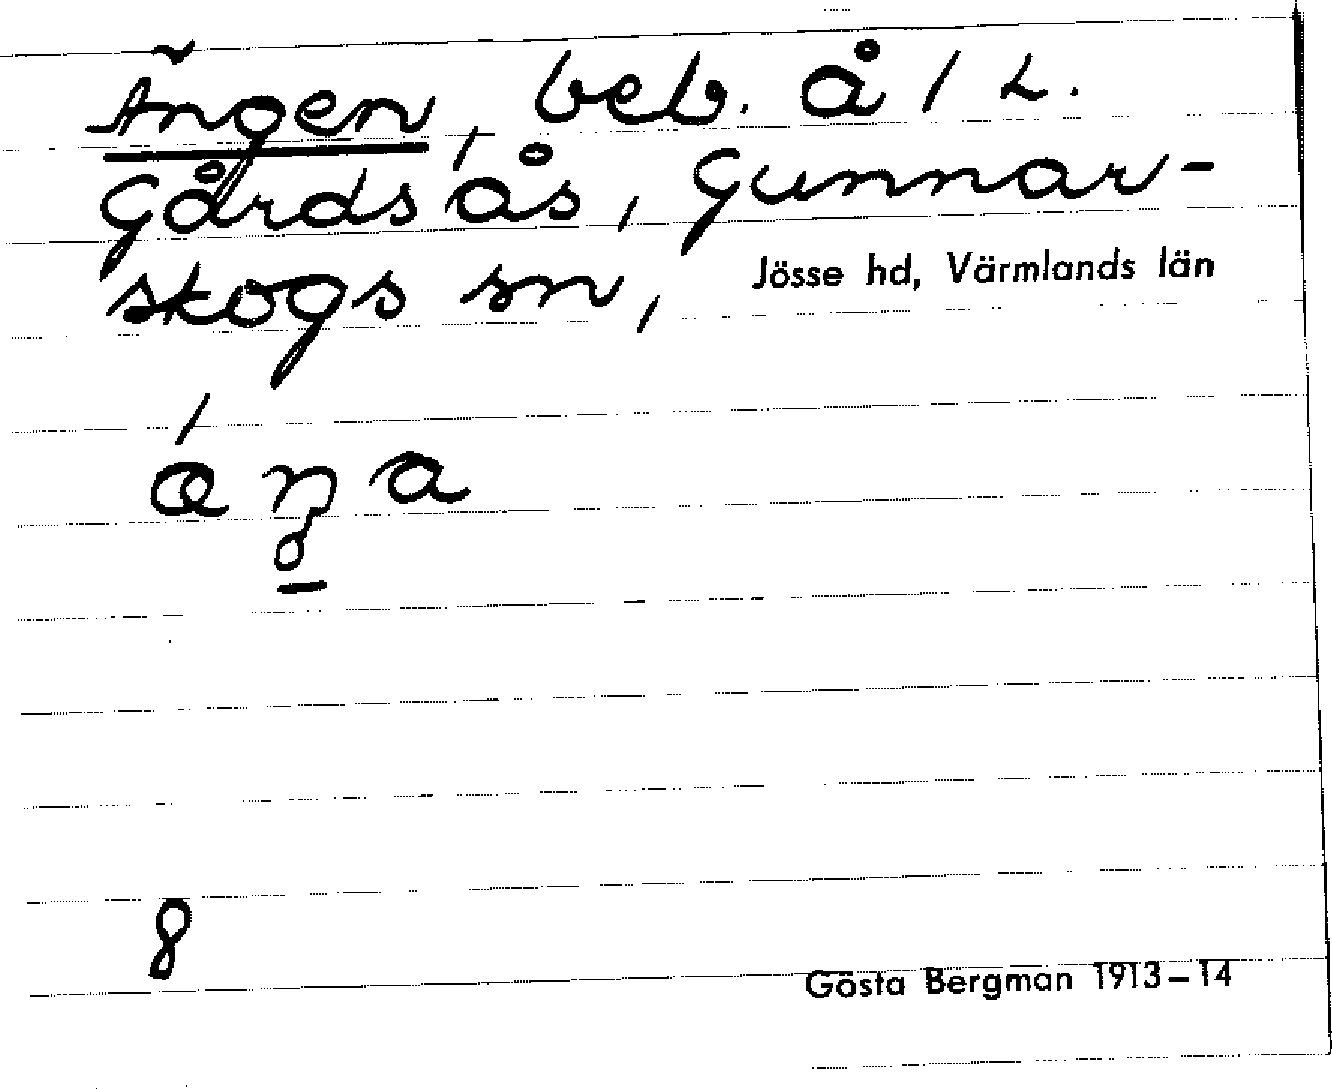 Ängen, beb. å 1 L.
Gårdsås, Gunnar-
skogs sn, Jösse hd, Värmlands län
8
Gösta Bergman 1913–14